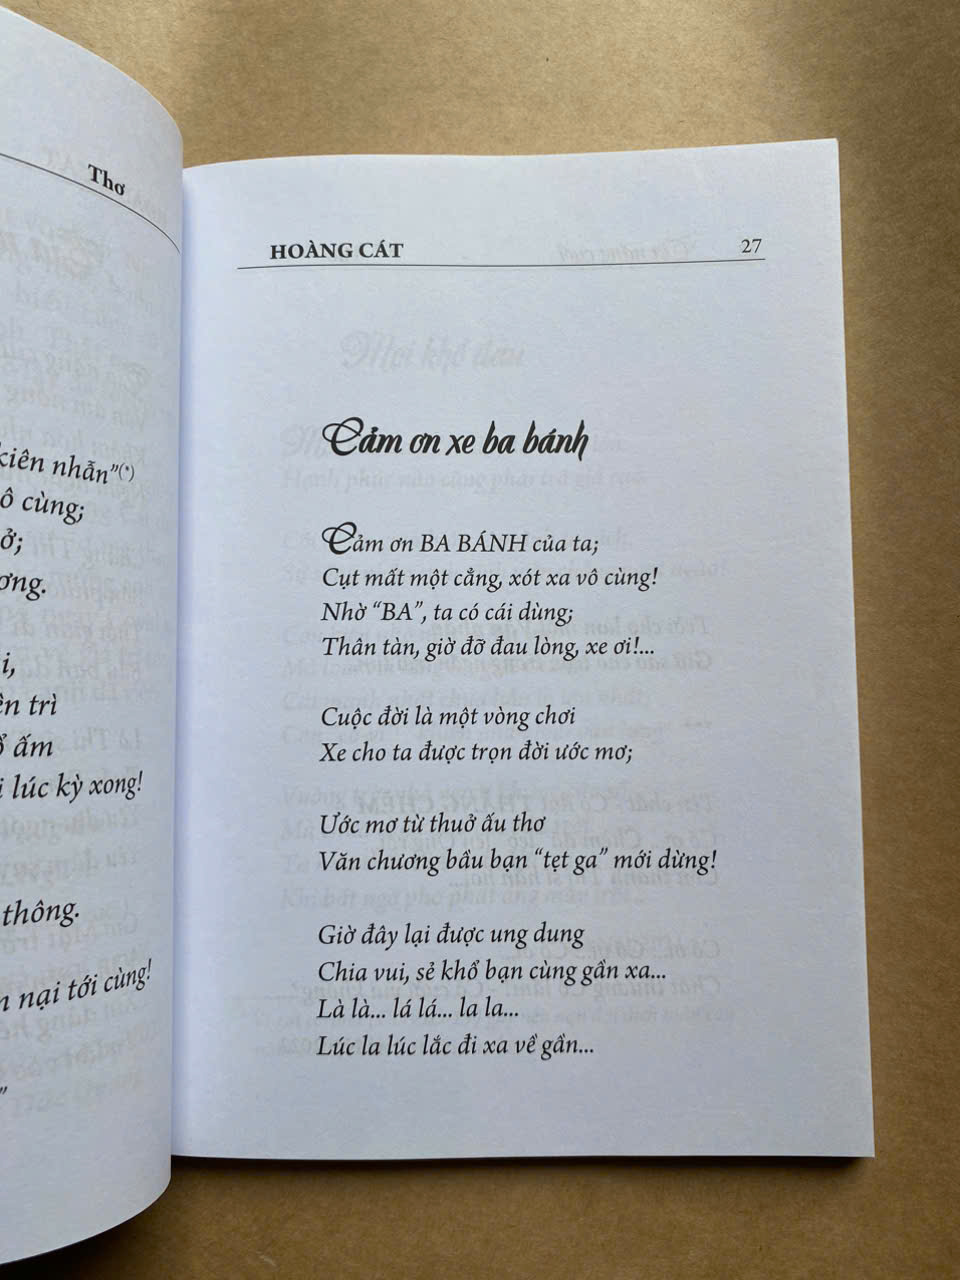 Thơ
kiên nhẫn”(*)
ô cùng;
ở;
ơng.
i,
ên trì
ổ ấm
i lúc kỳ xong!
thông.
n nại tới cùng!
”
HOÀNG CÁT 27
Cảm ơn xe ba bánh
Cảm ơn BA BÁNH của ta;
Cụt mất một cẳng, xót xa vô cùng!
Nhờ “BA”, ta có cái dùng;
Thân tàn, giờ đỡ đau lòng, xe ơi!...
Cuộc đời là một vòng chơi
Xe cho ta được trọn đời ước mơ;
Ước mơ từ thuở ấu thơ
Văn chương bầu bạn “tẹt ga” mới dừng!
Giờ đây lại được ung dung
Chia vui, sẻ khổ bạn cùng gần xa...
Là là... lá lá... la la...
Lúc la lúc lắc đi xa về gần...